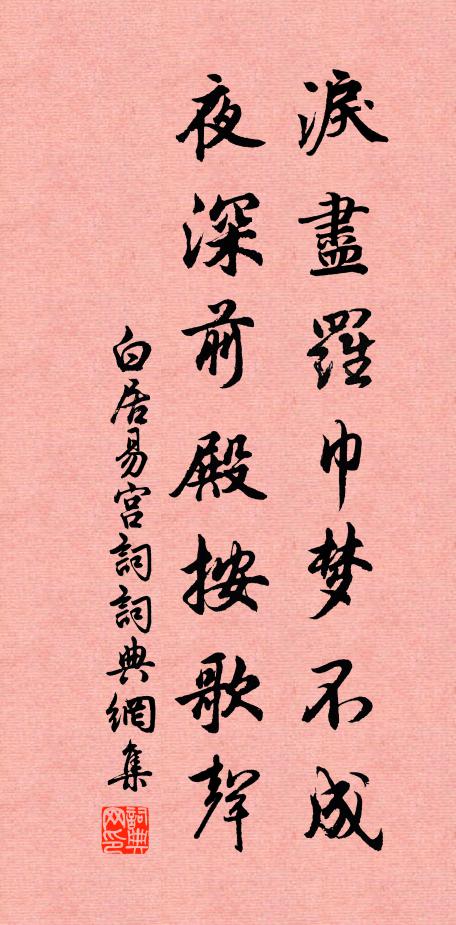 淚盡羅巾梦不成
夜深前殿按歌聲
白居易宫詞詞典網集
詞典网印